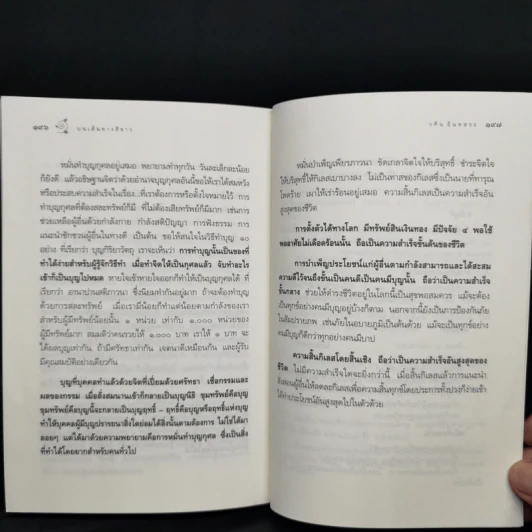 ๑๙๖ บนเส้นทางสีขาว
หมั่นทำบุญกุศลอยู่เสมอ พยายามทำทุกวัน วันละเล็กละน้อย
ก็ยังดี แล้วอธิษฐานจิตว่าด้วยอำนาจบุญกุศลอันนี้ขอให้เราได้สมหวัง
หรือประสบความสำเร็จในเรื่อง...ที่เราต้องการหรือตั้งใจไว้ การทำ
บุญกุศลที่ต้องสละทรัพย์ก็มี ที่ไม่ต้องเสียทรัพย์ก็มีมาก เช่นการ
ช่วยเหลือผู้อื่นด้วยกำลังกาย กำลังสติปัญญา การฟังธรรม การ
แนะนำชักชวนผู้อื่นในทางดี เป็นต้น ขอให้สนใจในวิธีทำบุญ ๑๐
อย่าง ที่เรียกว่า บุญกิริยาวัตถุ เราจะเห็นว่า การทำบุญนั้นเป็นของที่
ทำได้ง่ายสำหรับผู้รู้จักวิธีทำ เมื่อทำจิตให้เป็นกุศลแล้ว จับทำอะไร
เข้าก็เป็นบุญไปหมด หายใจเข้าหายใจออกก็ทำให้เป็นบุญกุศลได้ ที่
เรียกว่า อานาปานสติภาวนา ซึ่งนิยมทำกันอยู่มาก ถ้าจะทำบุญ
ด้วยการสละทรัพย์ เมื่อเรามีน้อยก็ทำแต่น้อยตามกำลังของเรา
สำหรับผู้มีทรัพย์น้อยนั้น ๑ หน่วย เท่ากับ ๑,๐๐๐ หน่วยของ
ผู้มีทรัพย์มาก สมมติว่าคนรวยให้ ๑,๐๐๐ บาท เราให้ ๑ บาท จะ
ได้ผลบุญเท่ากัน ถ้ามีศรัทธาเท่ากัน เจตนาดีเหมือนกัน และผู้รับ
มีคุณสมบัติอย่างเดียวกัน
บุญที่บุคคลทำแล้วด้วยจิตที่เปี่ยมด้วยศรัทธา เชื่อกรรมและ
ผลของกรรม เมื่อสั่งสมนานเข้าก็กลายเป็นบุญนิธิ ขุมทรัพย์คือบุญ
ขุมทรัพย์คือบุญนี้จะกลายเป็นบุญฤทธิ์ – ฤทธิ์คือบุญหรือฤทธิ์แห่งบุญ
ทำให้บุคคลผู้มีบุญปรารถนาสิ่งใดย่อมได้สิ่งนั้นตามต้องการ ไม่ใช่ได้มา
ลอยๆ แต่ได้มาด้วยความพยายามคือการหมั่นทำบุญกุศล ซึ่งเป็นสิ่ง
ที่ทำได้โดยยากสำหรับคนทั่วไป
วศิน อินทสระ ๑๙๗
หมั่นบำเพ็ญเพียรภาวนา ขัดเกลาจิตใจให้บริสุทธิ์ ชำระจิตใจ
ให้บริสุทธิ์ให้กิเลสเบาบางลง ไม่เป็นทาสของกิเลสซึ่งเป็นนายที่ทารุณ
โหดร้าย เผาให้เร่าร้อนอยู่เสมอ ความสิ้นกิเลสเป็นความสำเร็จอัน
สูงสุดของชีวิต
การตั้งตัวได้ทางโลก มีทรัพย์สินเงินทอง มีปัจจัย ๔ พอใช้
พออาศัยไม่เดือดร้อนนั้น ถือเป็นความสำเร็จขั้นต้นของชีวิต
การบำเพ็ญประโยชน์แก่ผู้อื่นตามกำลังสามารถและได้สะสม
ความดีไว้จนถึงขั้นเป็นคนดีเป็นคนมีบุญนั้น ถือว่าเป็นความสำเร็จ
ขั้นกลาง ช่วยให้ดำรงชีวิตอยู่ในโลกนี้เป็นสุขพอสมควร แม้จะต้อง
เป็นทุกข์อย่างคนมีบุญอยู่บ้างก็ตาม นอกจากนี้ยังเป็นการป้องกันภัย
ในสัมปรายภพ เช่นภัยในอบายภูมิเป็นต้นด้วย แม้จะเป็นทุกข์อย่าง
คนมีบุญก็ดีกว่าทุกข์อย่างคนมีบาป
ความสิ้นกิเลสโดยสิ้นเชิง ถือว่าเป็นความสำเร็จอันสูงสุดของ
ชีวิต ไม่มีความสำเร็จใดจะยิ่งกว่านี้ เมื่อสิ้นกิเลสแล้วการแนะนำ
สั่งสอนผู้อื่นให้ลดละกิเลสเพื่อความสิ้นทุกข์โดยประการทั้งปวงก็ง่ายเข้า
ทำประโยชน์อันสูงสุดไปในตัวด้วย